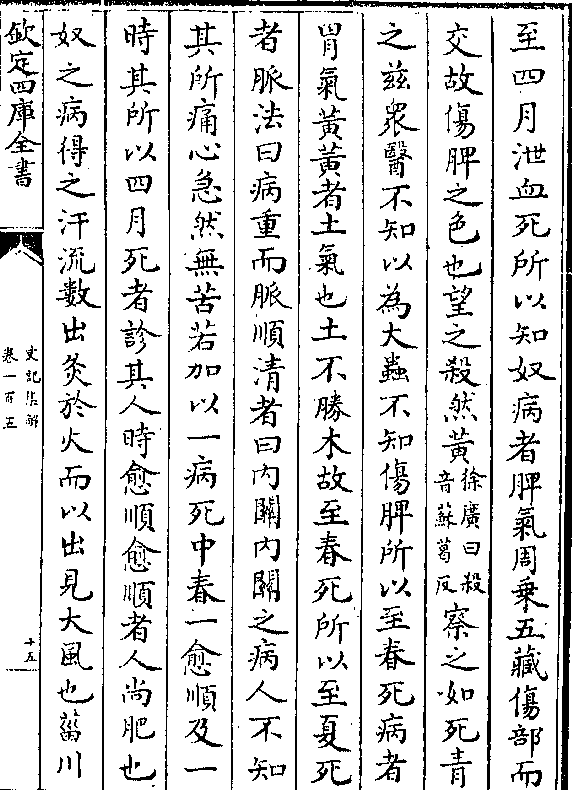 至四月泄血死所以知奴病者脾氣周乗五藏傷部而
交故傷脾之色也望之殺然黄徐廣曰殺音蘇葛反察之如死青
之兹衆醫不知以為大蟲不知傷脾所以至春死病者
胃氣黄黄者土氣也土不勝木故至春死所以至夏死
者脈法曰病重而脈順清者曰内關内關之病人不知
其所痛心急然無苦若加以一病死中春一愈順及一
時其所以四月死者診其人時愈順愈順者人尚肥也
奴之病得之汗流數出灸於火而以出見大風也菑川
欽定四庫全書
史記集解
卷一百五
十五